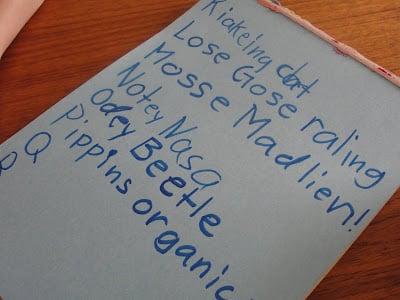 Kiakeing clat
Lose Glose raling
Mosse Madlien!
Notey Nasa
Odey Beetle
Pippins organic
Q
R